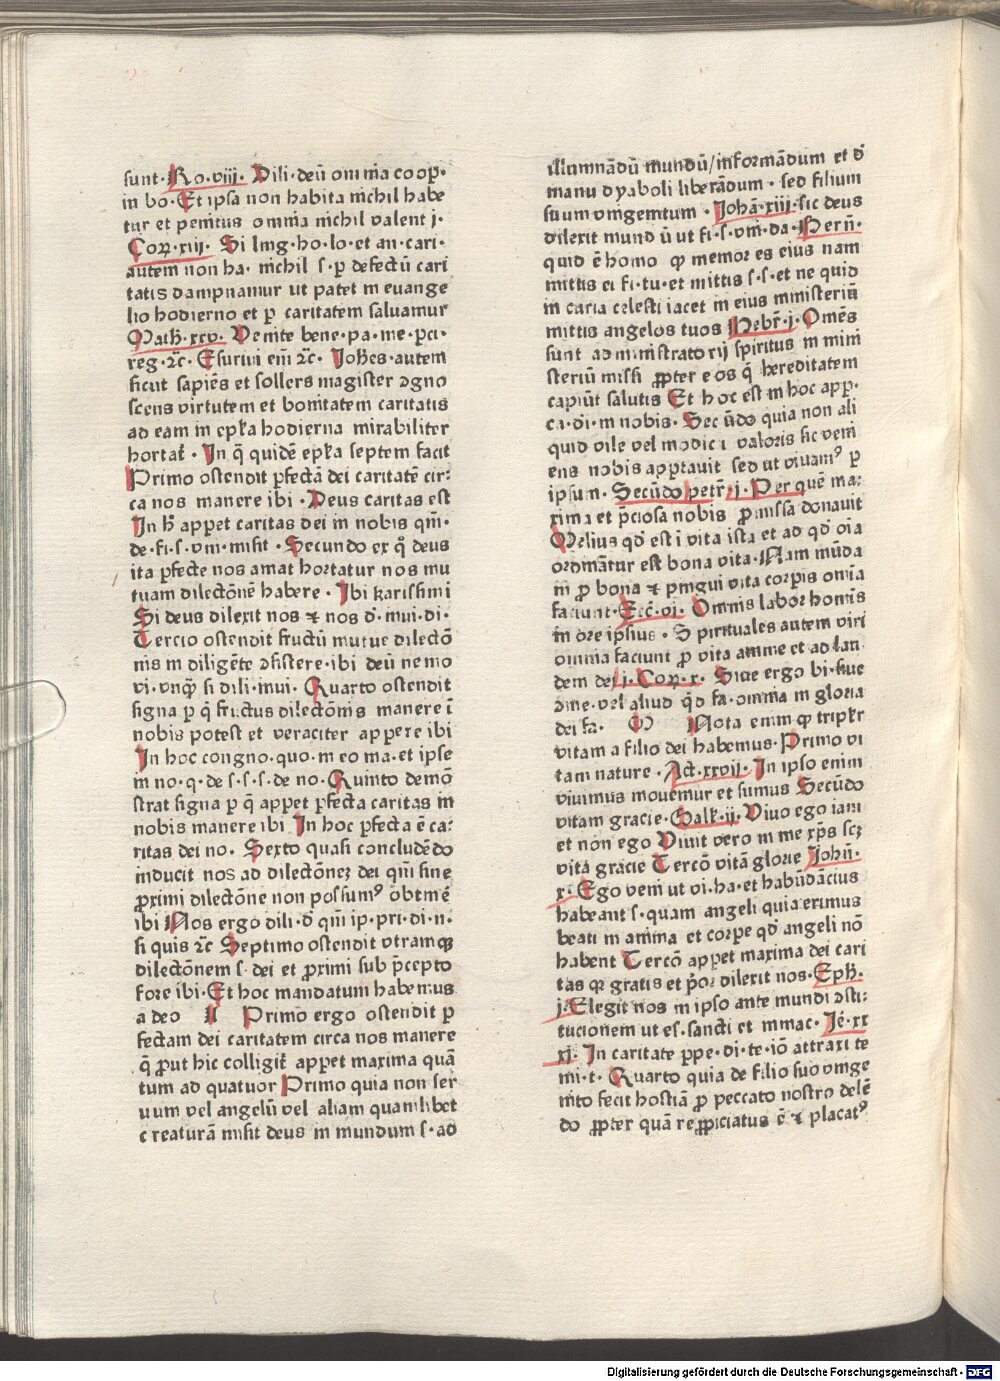 sunt · Ro · viii · Dili · deū omnia coop ·
in bo · Et ipsa non habita nichil habe
tur et penitus omnia nichil valent j ·
Coꝝ · xiij · Si ling · ho · lo · et an · cari ·
autem non ha · nichil s · ꝑ defectū cari
tatis dampnamur ut patet in euange
lio hodierno et ꝑ caritatem saluamur
Math̄ · xxv · Venite bene · pa · me · pci ·
reg · ⁊c̄ · Esuriui eni᷒ ⁊c̄ · Joh̄es · autem
sicut sapiēs et sollers magister ↄgno
scens virtutem et bonitatem caritatis
ad eam in ep̄ka hodierna mirabiliter
hortat᷒ · In q̄ quidē ep̄ka septem facit
Primo ostendit ꝑfectā dei caritatē cir:
ca nos manere ibi · Deus caritas est
In h̄ appet caritas dei in nobis qm̄ ·
de · fi · s · vni · misit · Secundo ex q° deus
ita ꝑfecte nos amat hortatur nos mu
tuam dilectōnē habere · Ibi karissimi
Si deus dilexit nos ⁊ nos d̄ · mui · di ·
Tercio ostendit fructū mutue dilectō
nis in diligēte ↄsistere · ibi deū nemo
vi · vnq̄ si dili · inui · Quarto ostendit
signa ꝑ q̄ fructus dilectōnis manere ī
nobis potest et veraciter appere ibi
In hoc congno · quo · in eo ma · et ipse
in no · q · de s · s · s · de no · Quinto demō
strat signa ꝑ q̄ appet ꝑfecta caritas in
nobis manere ibi In hoc ꝑfecta ē ca:
ritas dei no · Sexto quasi concludēdo
inducit nos ad dilectōneꝫ dei qm̄ sine
ꝓximi dilectōne non possum᷒ obtinē
ibi Nos ergo dili · d̄ qm̄ ip · pri · di · n ·
si quis ⁊c̄ Septimo ostendit vtramqꝫ
dilectōnem s · dei et ꝓximi sub p̄cepto
fore ibi · Et hoc mandatum habemus
a deo Primo ergo ostendit ꝑ
fectam dei caritatem circa nos manere
q̄ ꝓut hic colligit᷒ appet maxima quā
tum ad quatuor Primo quia non ser
uum vel angelū vel aliam quamlibet
creaturā misit deus in mundum s · ad
illuminādū mundū/informādum et d̄
manu dyaboli liberādum · sed filium
suum vnigenitum · Johā · xiij · sic deus
dilexit mundū ut fi · s · vni · da · Bern̄ ·
quid ē homo ꝙ memor es eius nam
mittis ei fi · tu · et mittis s · s · et ne quid
in curia celesti iacet in eius ministeriū
mittis angelos tuos Hebr̄ · j · Omēs
sunt administratorij spiritus in mini
steriū missi ꝓpter eos q̄ hereditatem
capiūt salutis Et hoc est in hoc app ·
ca · di · in nobis · Secūdo quia non ali
quid vile vel modici valoris sic veni
ens nobis apptauit sed ut viuam᷒ ꝑ
ipsum · Secūdo petr̄ · j · Per quē ma:
xima et p̄ciosa nobis ꝓmissa donauit
Melius qd̄ est ī vita ista et ad qd̄ oīa
ordinātur est bona vita · Nam mūda
ni ꝓ bona ⁊ pingui vita corpis omīa
faciunt · Ecc̄ · vi · Omnis labor homīs
in ore ipsius · Spirituales autem viri
omnia faciunt ꝓ vita anime et ad lau
dem dei j · Coꝝ · x · Siue ergo bi · siue
ↄme · vel aliud qd̄ fa · omnia in gloria
dei fa · Nota enim ꝙ tripl᷒r
vitam a filio dei habemus · Primo vi
tam nature · Act̄ · xxvij · In ipso enim
viuimus mouemur et sumus Secūdo
vitam gracie · Galk̄ · ij · Viuo ego iam
et non ego Viuit vero in me xp̄s scꝫ
vitā gracie Tercō vitā glorie Joh̄n ·
x · Ego veni ut vi · ha · et habūdācius
habeant s · quam angeli quia erimus
beati in anima et corpe qd̄ angeli nō
habent Tercō appet maxima dei cari
tas qꝛ gratis et p̄or dilexit nos · Eph̄ ·
j · Elegit nos in ipso ante mundi ↄsti:
tucionem ut es · sancti et inmac · Jē · xx
xj · In caritate ppe · di · te · iō attraxi te
mi · t · Quarto quia de filio suo vnige
nito fecit hostiā ꝓ peccato nostro delē
do ꝓpter quā reꝓpiciatus ē ⁊ placat᷒
Digitalisierung gefördert durch die Deutsche Forschungsgemeinschaft · DFG